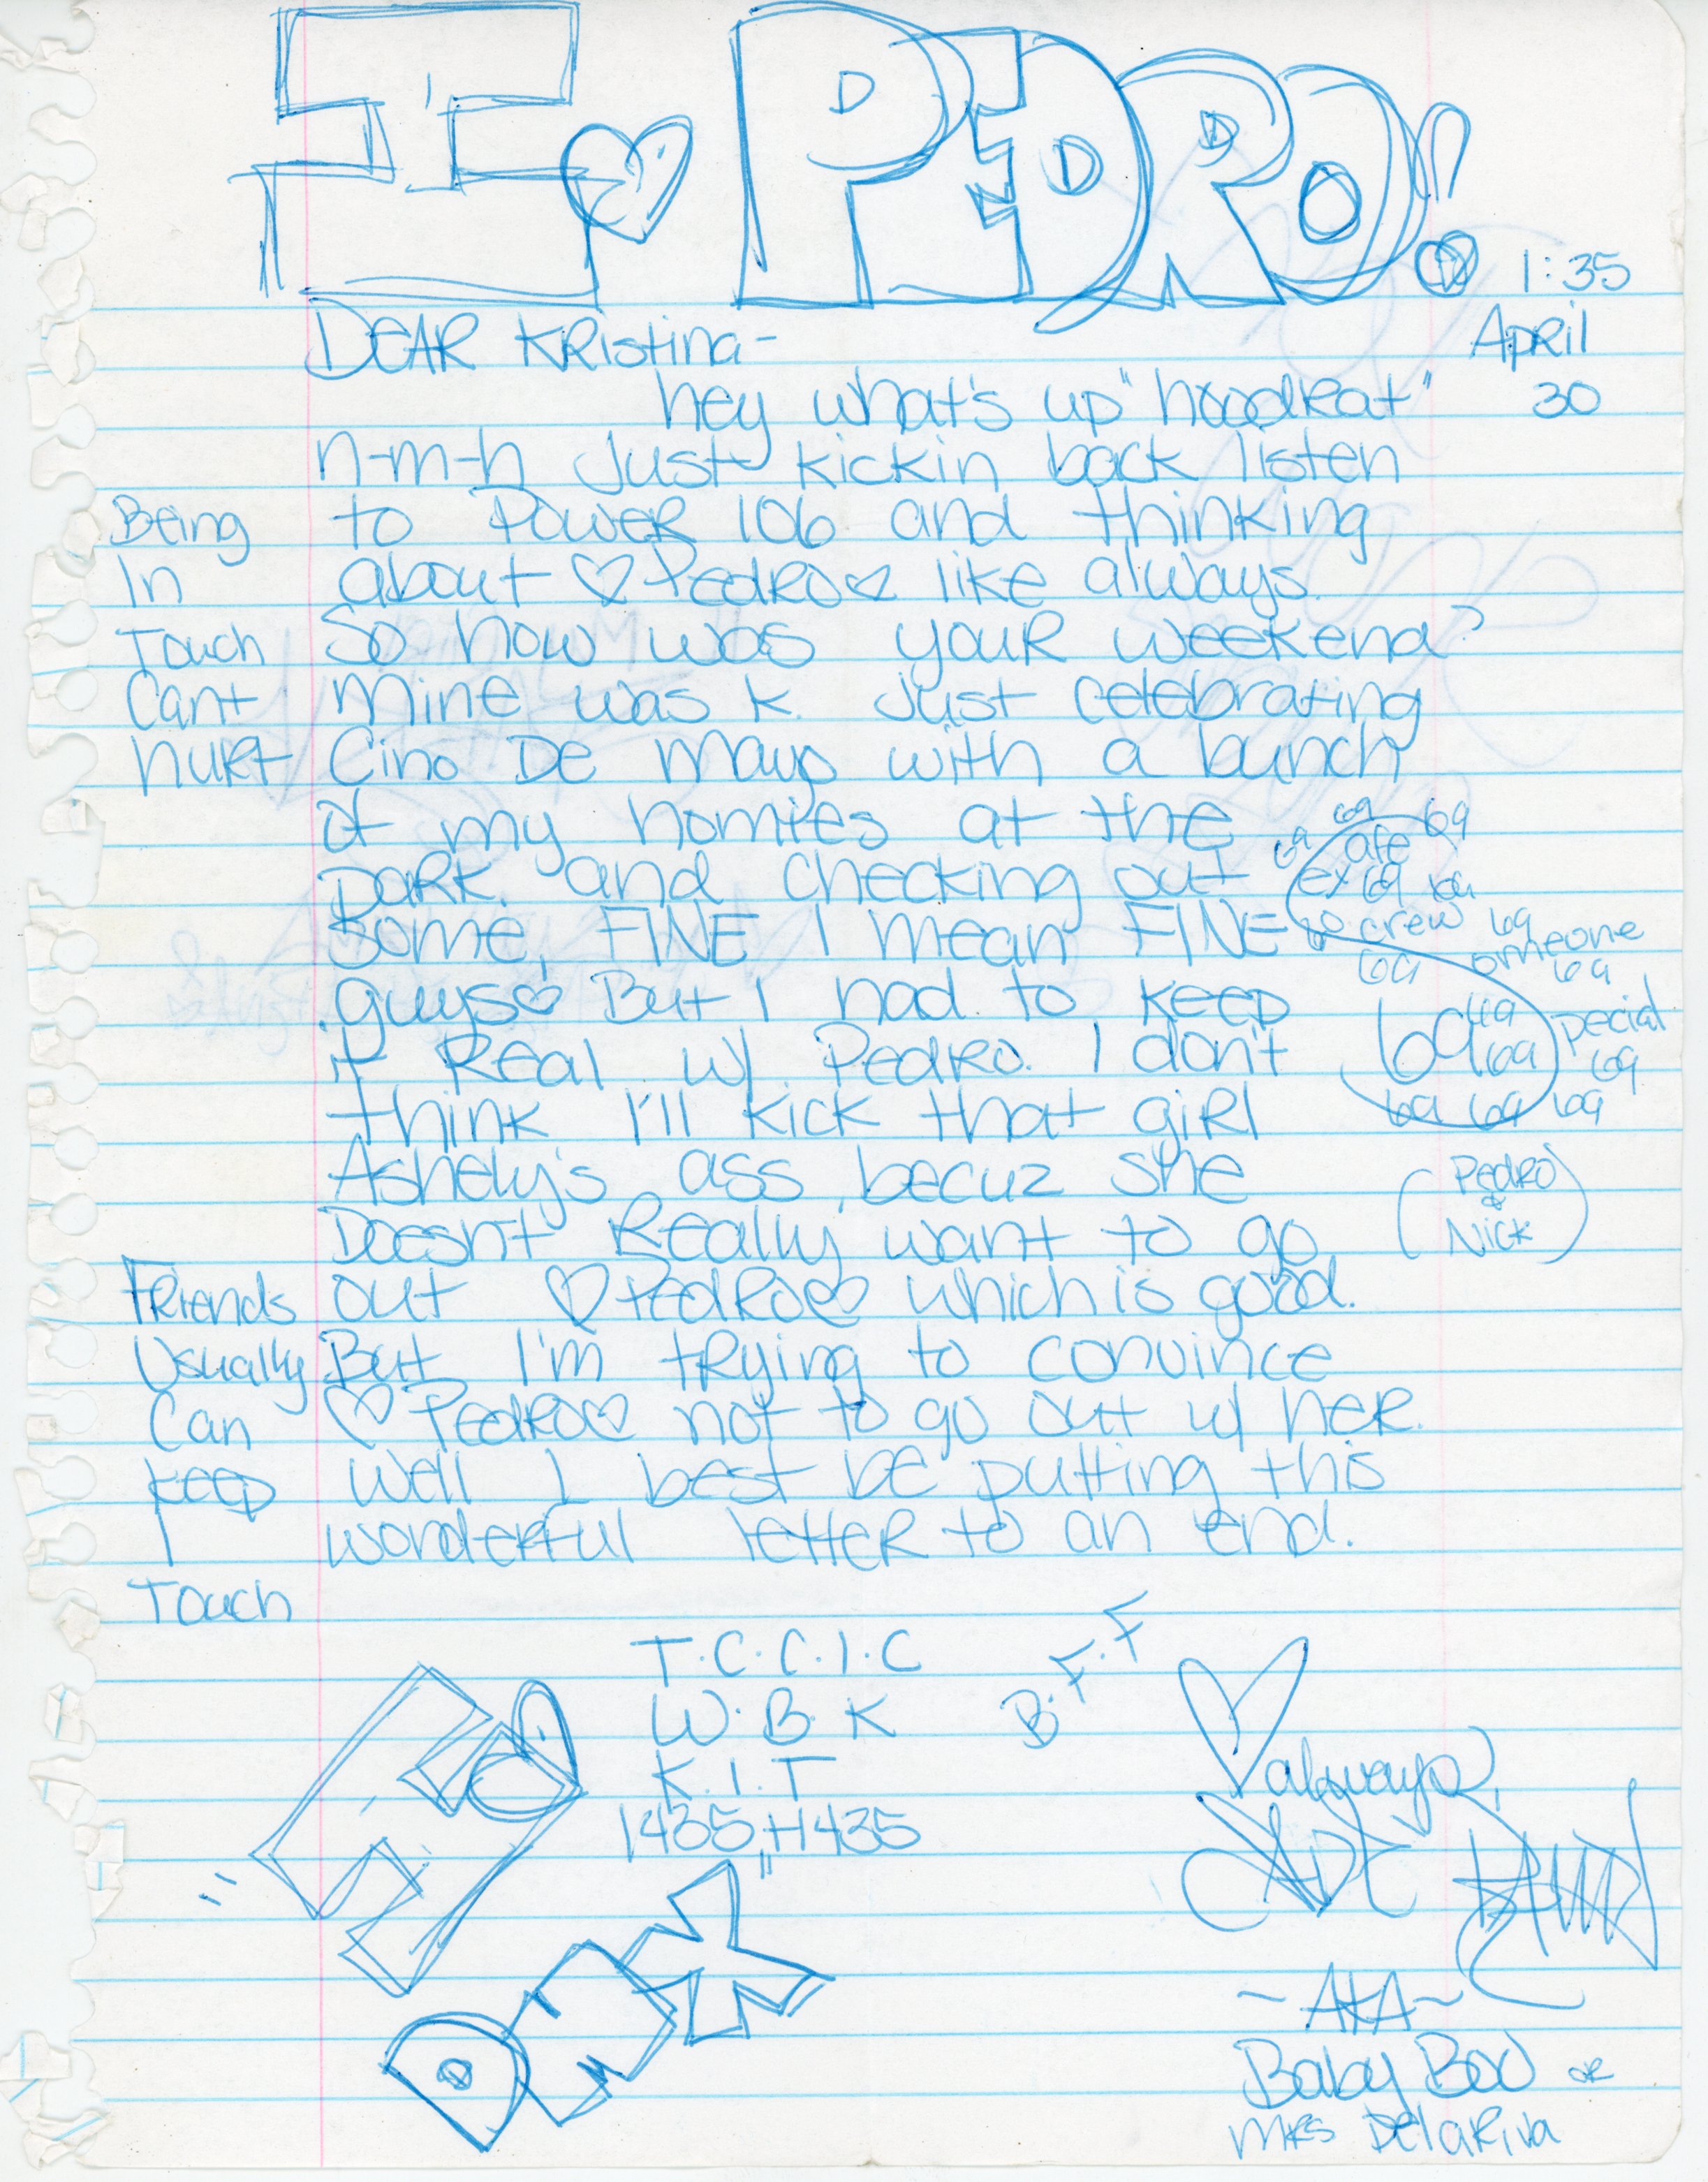 I ♡ PEDRO!
1:35
April
30
DEAR Kristina-
hey what's up "hoodRat"
n-m-h just kickin back listen
to Power 106 and thinking
about ♡ Pedro ♡ like always.
So how was your weekend?
Mine was k. Just celebrating
Cino De mayo with a bunch
of my homies at the
park. and checking out
some, FINE I mean FINE
guys ♡ But I had to keep
it Real w/ Pedro. I don't
think I'll kick that girl
Ashely's ass, becuz she
Doesn't Really want to go
out ♡ Pedro ♡ which is good.
But I'm trying to convince
♡ Pedro ♡ not to go out w/ her.
Well I best be putting this
wonderful letter to an end.
Being
In
Touch
Cant
hurt
Friends
Usually
Can
keep
I
Touch
69 69 69
are
ex 69 69
crew 69
69 omeone
69
69 69 pecial
69 69
69 69 69
(Pedro
&
Nick)
T.C.C.I.C
W.B.K
K.I.T
1435, H435
B.F.F
DMX
♡ always,
~AKA~
Baby Boo or
Mrs DelaRiva